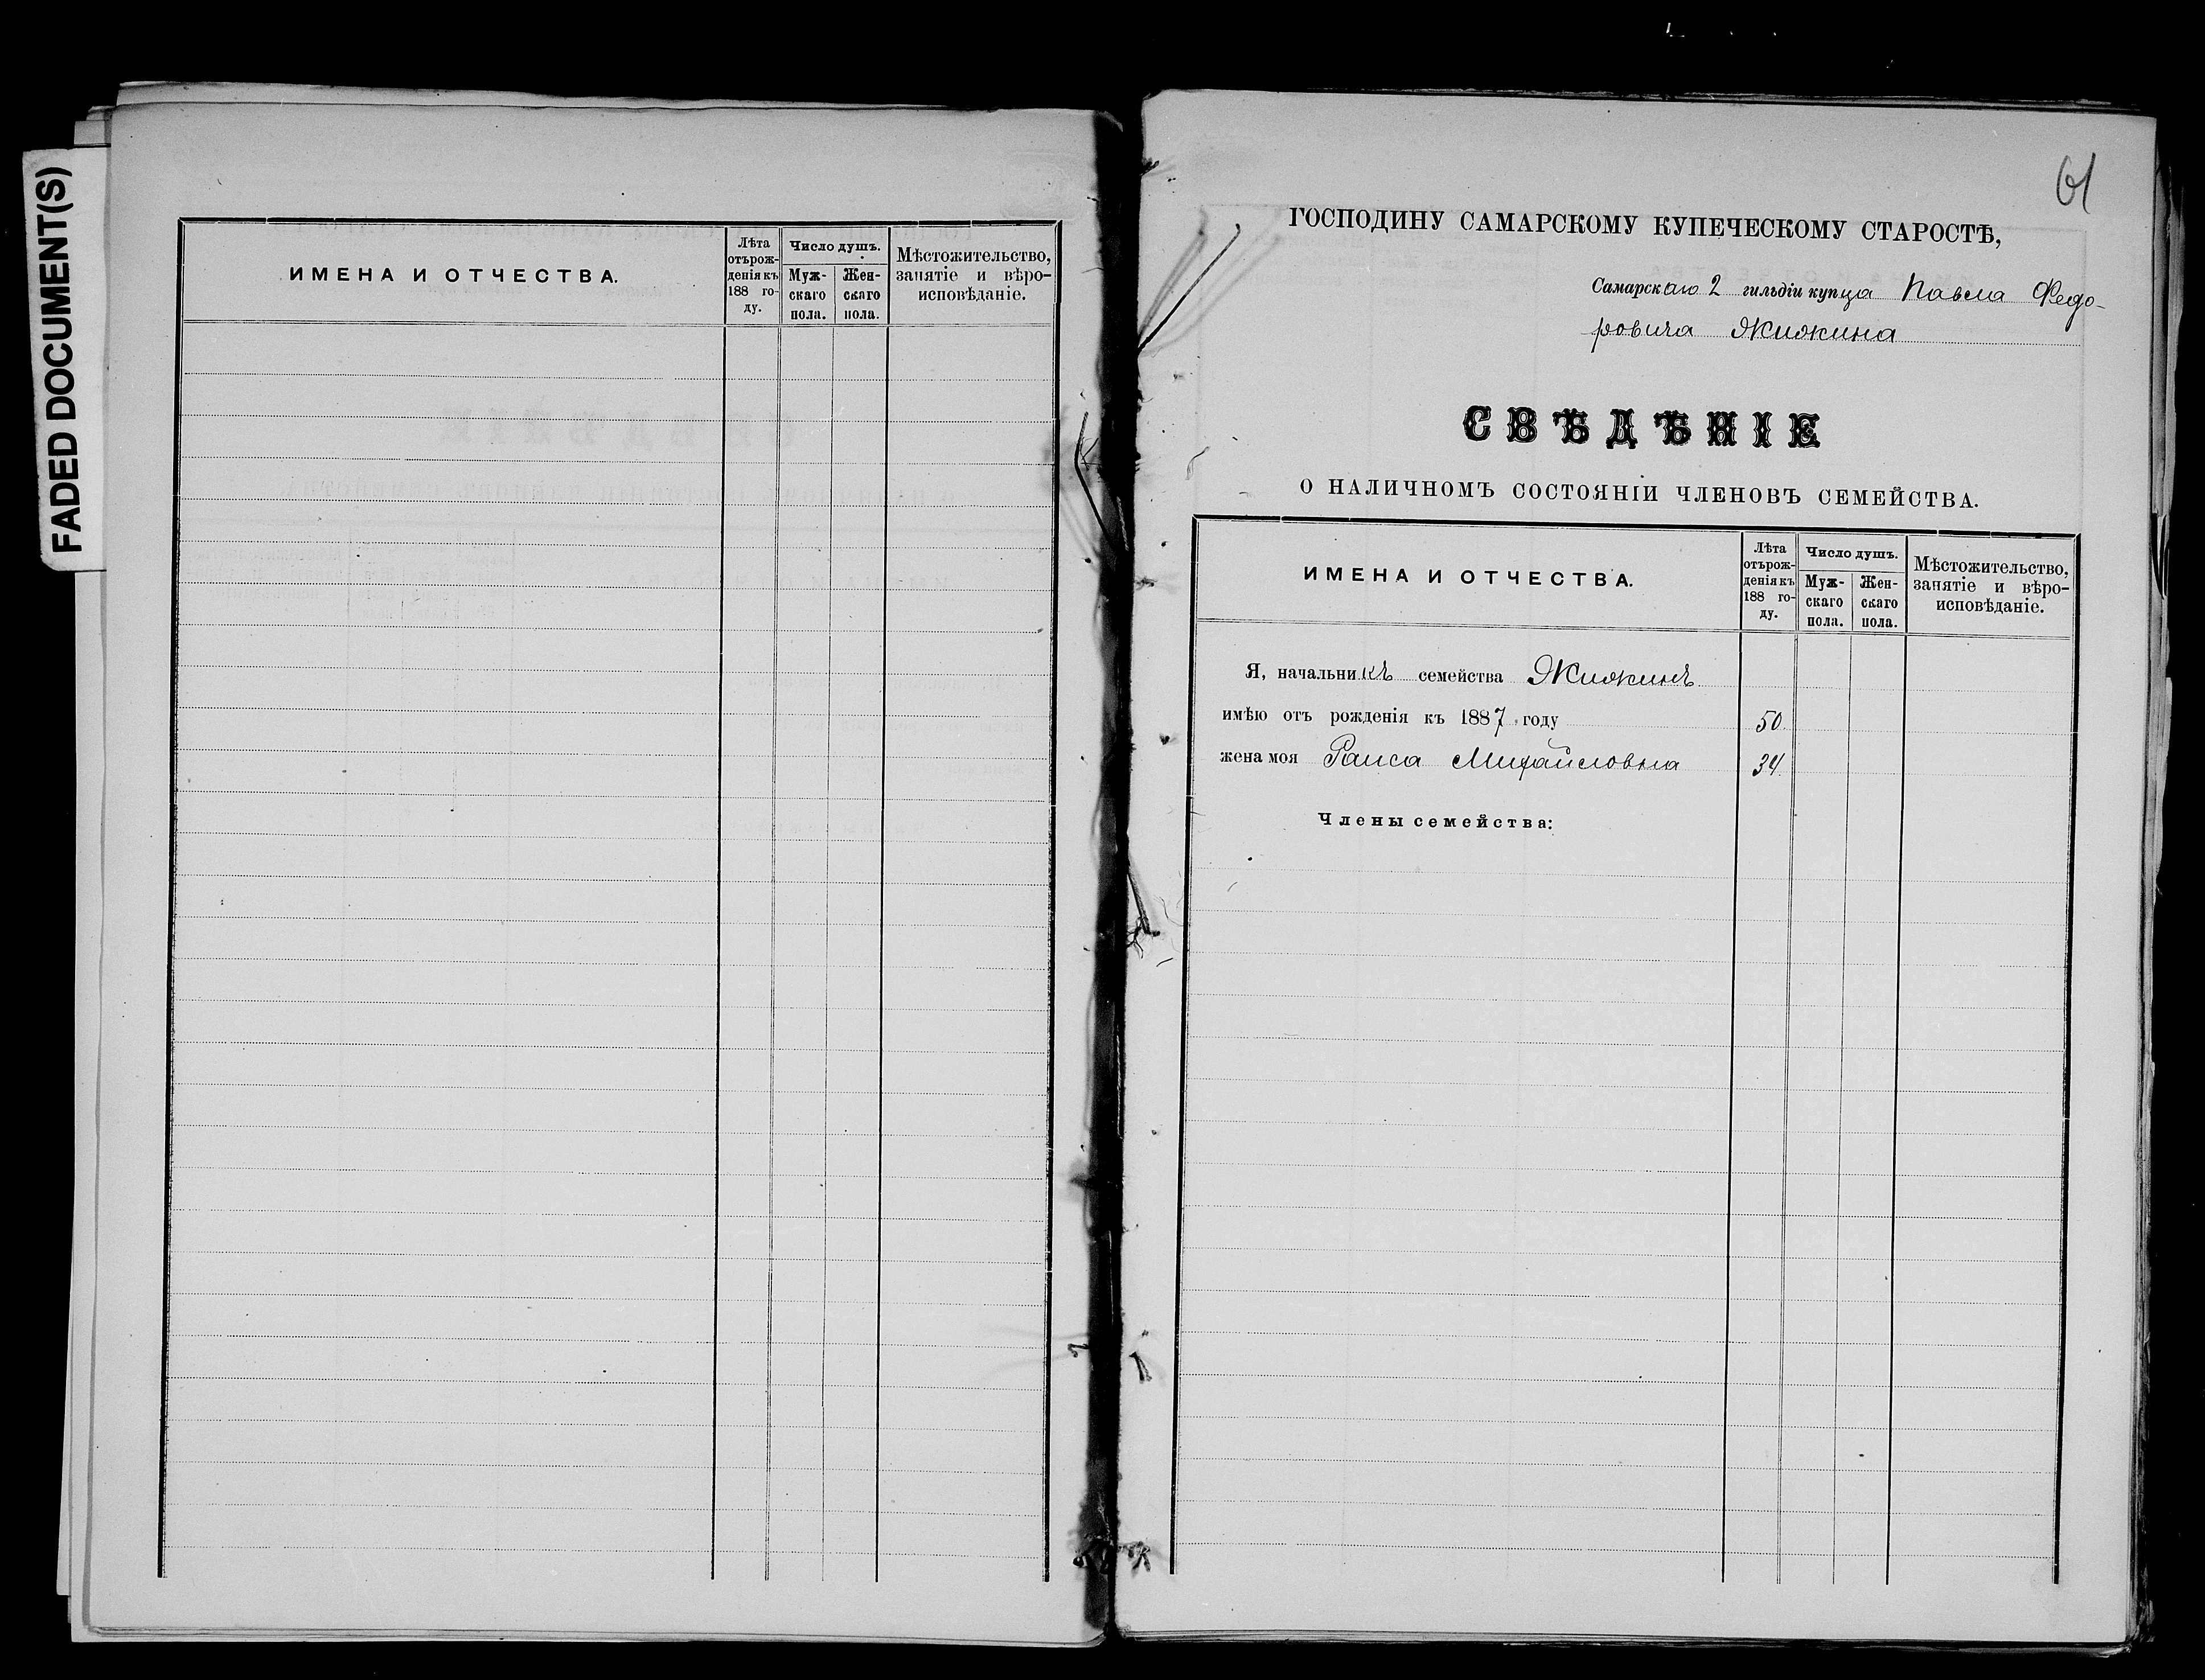 FADED DOCUMENT(S)
ИМЕНА И ОТЧЕСТВА.
Лѣта
отърож-
денія къ
188 го-
ду.
Число душъ.
Муж-
скаго
пола.
Жен-
скаго
пола.
Мѣстожительство,
занятіе и вѣро-
исповѣданіе.
61
ГОСПОДИНУ САМАРСКОМУ КУПЕЧЕСКОМУ СТАРОСТѢ,
Самарскаго 2 гильдіи купца Павла Федо-
ровича Жижкина
СВѢДѢНІЕ
О НАЛИЧНОМЪ СОСТОЯНІИ ЧЛЕНОВЪ СЕМЕЙСТВА.
ИМЕНА И ОТЧЕСТВА.
Лѣта
отърож-
денія къ
188 го-
ду.
Число душъ.
Муж-
скаго
пола.
Жен-
скаго
пола.
Мѣстожительство,
занятіе и вѣро-
исповѣданіе.
Я, начальникъ семейства Жижкинъ
имѣю отъ рожденія къ 1887 году 50.
жена моя Раиса Михайловна 34.
Члены семейства: